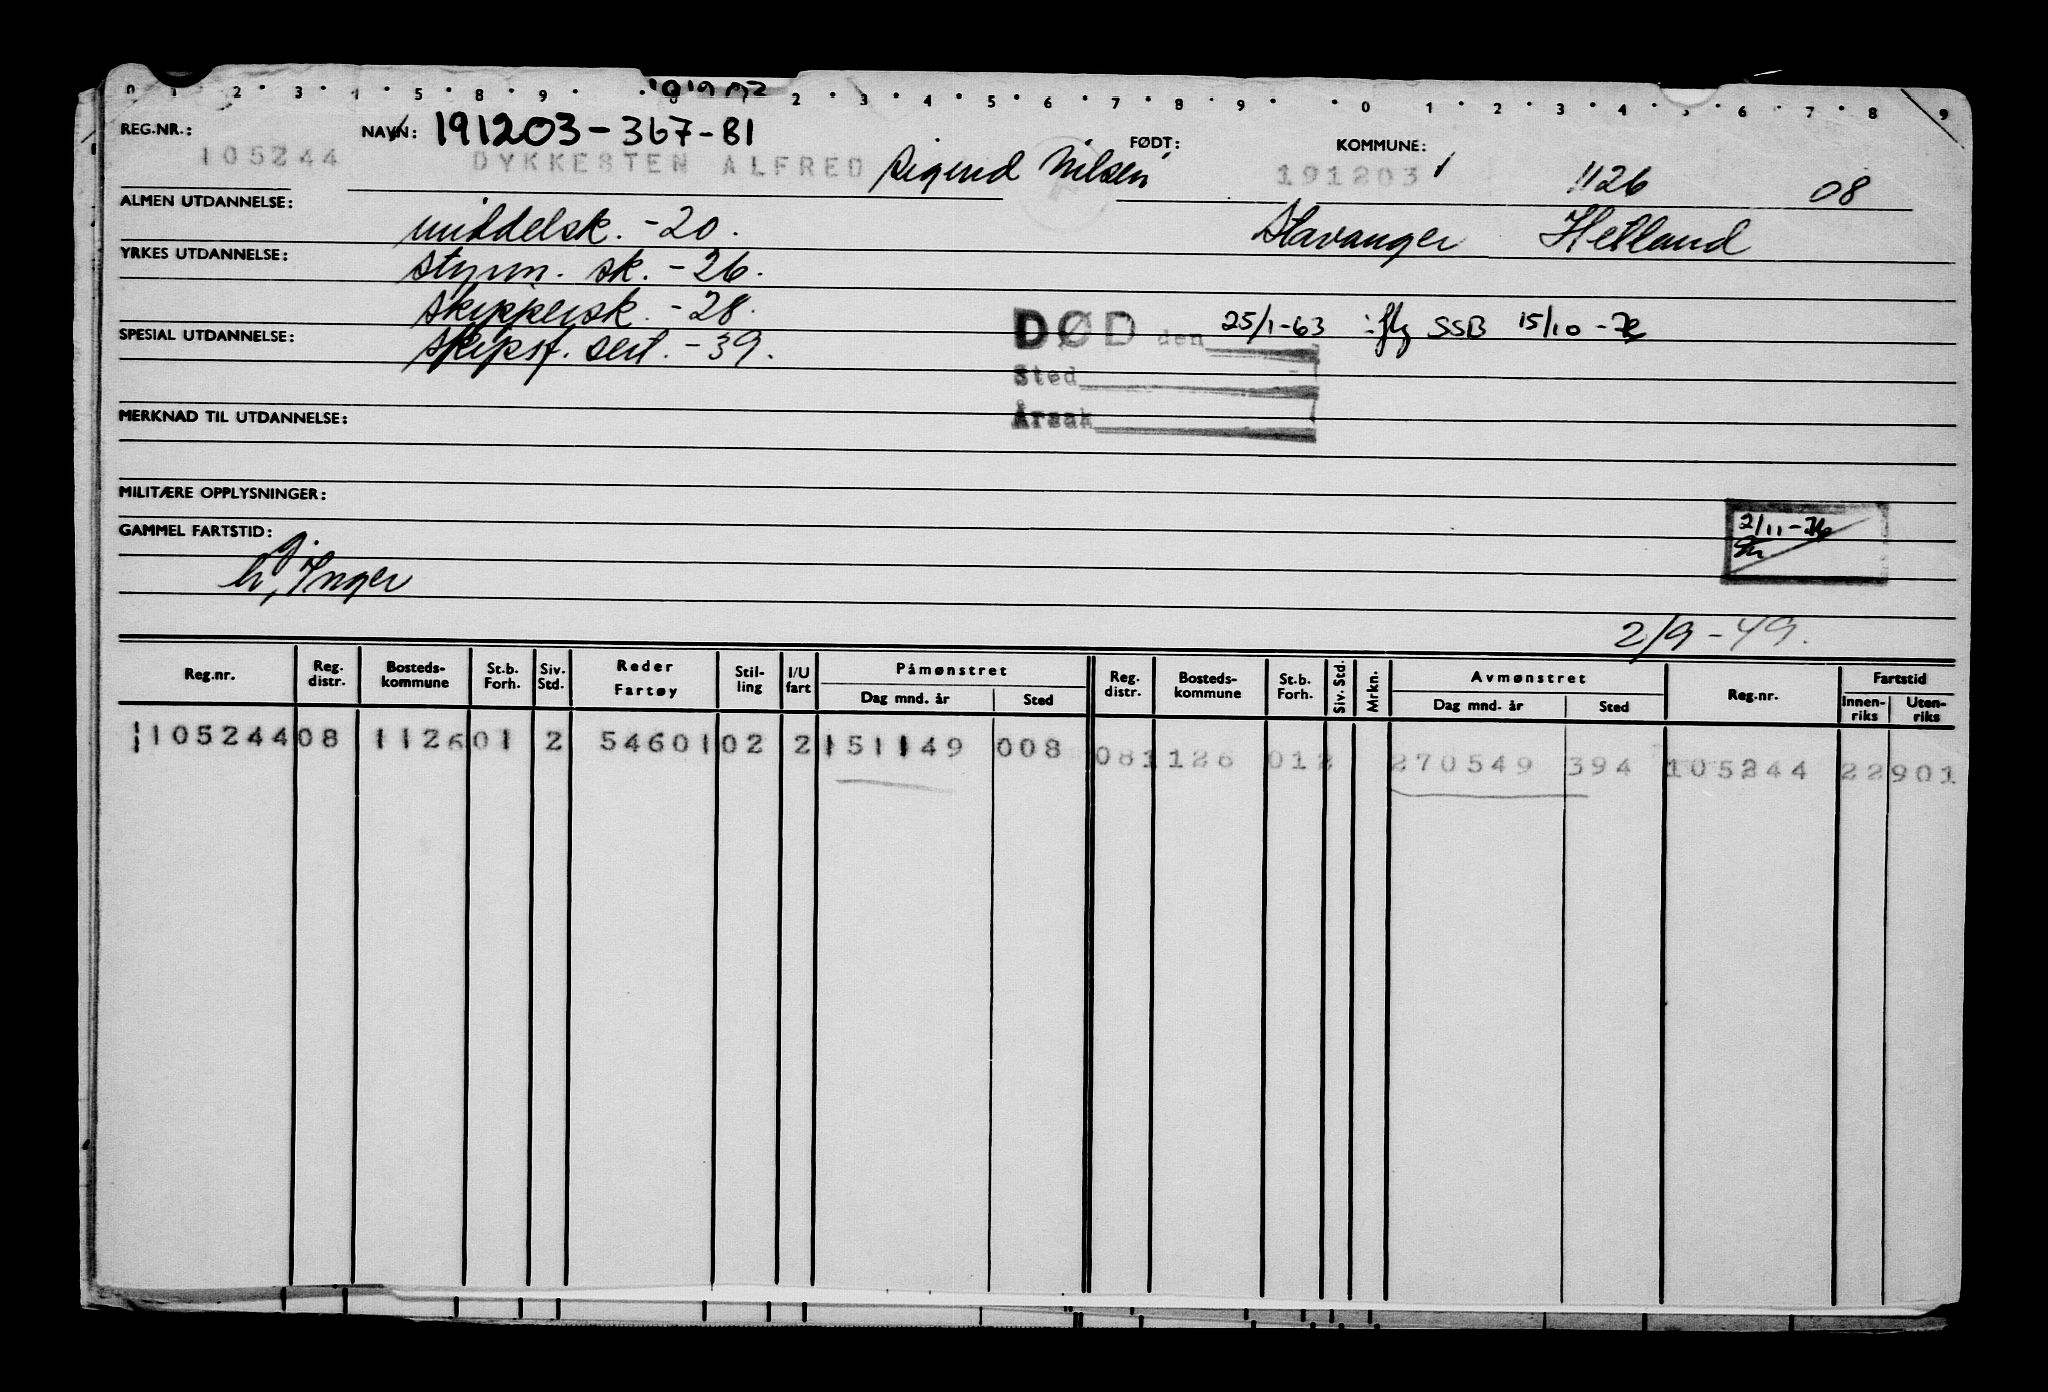 0 1 2 3 4 5 8 9 2 3 4 5 6 7 8 9 0 1 2 3 4 5 6 7 8 9
REG.NR.: NAVN: 191203-367-81 FØDT: KOMMUNE:
105244 DYKKESTEN ALFRED Sigurd Nilsen 191203 1126 08
ALMEN UTDANNELSE: middelsk. -20. Stavanger Hetland
YRKES UTDANNELSE: styrm. sk. -26.
skippersk. -28.
DØD den 25/1-63 SSB 15/10
SPESIAL UTDANNELSE: skipsf. sert. -39.
Sted
Årsak
MERKNAD TIL UTDANNELSE:
MILITÆRE OPPLYSNINGER:
2/11-76
GAMMEL FARTSTID:
Inger
2/9-49.
Reg.nr. Reg. distr. Bosteds-kommune St.b. Forh. Siv. Std. Reder Fartøy Stil-ling I/U fart Påmønstret Dag mnd. år Sted Reg. distr. Bosteds-kommune St.b. Forh. Siv. Std. Mrkn. Avmønstret Dag mnd. år Sted Reg.nr. Fartstid Innen-riks Uten-riks
105244 08 1126 01 2 54601 02 2 151149 008 08 1126 01 2 270549 394 105244 22 901